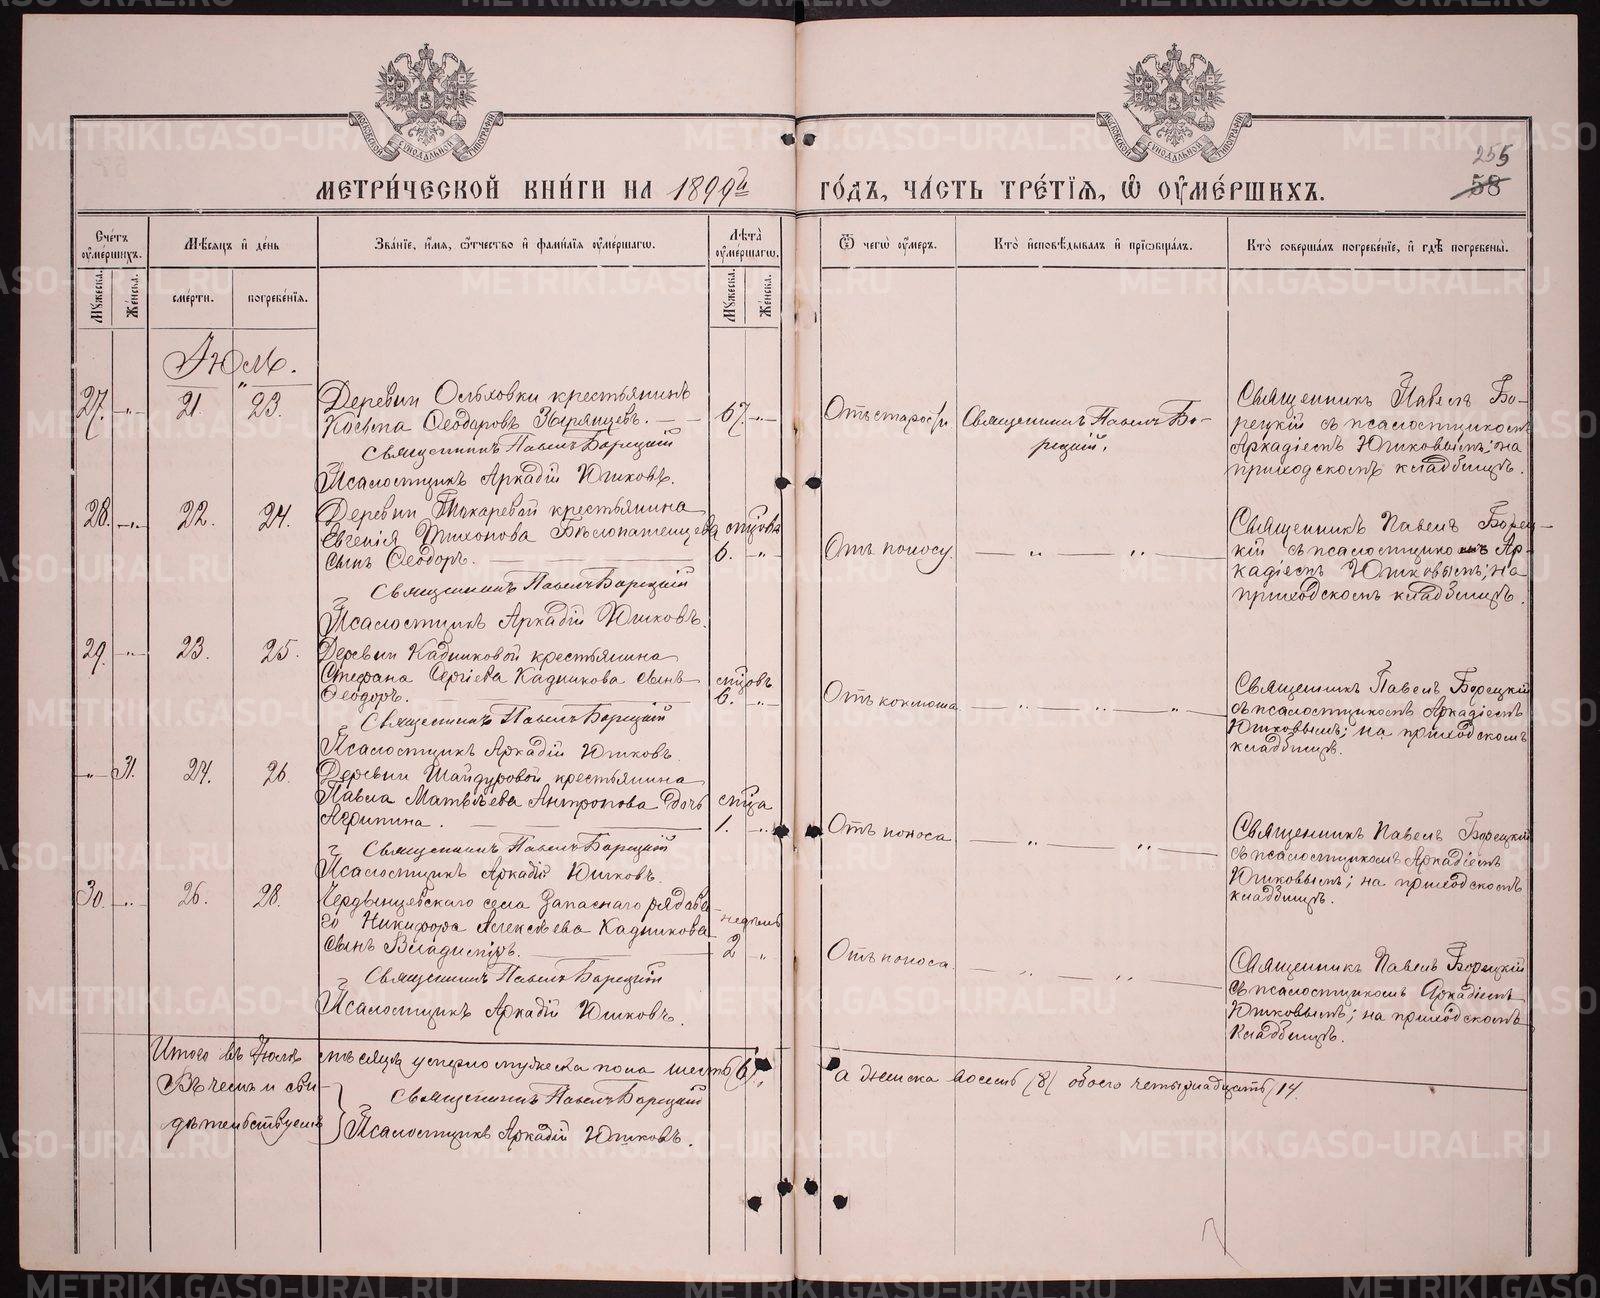 МЕТРИ́ЧЕСКОЙ КНИ́ГИ НА 1899й ГО́ДЪ, ЧА́СТЬ ТРЕ́ТІѦ, Ѽ ОУМЕ́РШИХЪ.
255
58
Счетъ оумершихъ.
Мужеска.
Женска.
Мѣсѧцъ и день
смерти.
погребеніѧ.
Званіе, имѧ, ѿчество и фамиліѧ оумершагѡ.
Лѣта оумершагѡ.
Мужеска.
Женска.
Ѿ чегѡ оумеръ.
Кто исповѣдывалъ и пріѡбщалъ.
Кто совершалъ погребеніе, и гдѣ погребены.
Іюль.
27. -„- 21. 23.
Деревни Ольховки крестьянинъ
Косьма Ѳеодоровъ Зырянцевъ. 67. -„-
Священникъ Павелъ Борецкій
Псаломщикъ Аркадій Юшковъ.
Отъ старости
Священникъ Павелъ Бо-
рецкій.
Священникъ Павелъ Бо-
рецкій съ псаломщикомъ
Аркадіемъ Юшковымъ; на
приходскомъ кладбищѣ.
28. -„- 22. 24.
Деревни Токаревой крестьянина
Евгенія Тихонова Бѣлопашецева
сынъ Ѳеодоръ. 6. -„-
Священникъ Павелъ Борецкій
Псаломщикъ Аркадій Юшковъ.
Отъ поносу
Священникъ Павелъ Борец-
кій съ псаломщикомъ Ар-
кадіемъ Юшковымъ; на
приходскомъ кладбищѣ.
29. -„- 23. 25.
Деревни Кадниковой крестьянина
Стефана Сергіева Кадникова сынъ
Ѳеодоръ. 6. -„-
Священникъ Павелъ Борецкій
Псаломщикъ Аркадій Юшковъ.
Отъ коклюша
Священникъ Павелъ Борецкій
съ псаломщикомъ Аркадіемъ
Юшковымъ; на приходскомъ
кладбищѣ.
-„- 31. 24. 26.
Деревни Шайдуровой крестьянина
Павла Матвѣева Антропова дочь
Агрипина. 1.
Священникъ Павелъ Борецкій
Псаломщикъ Аркадій Юшковъ.
Отъ поноса
Священникъ Павелъ Борецкій
съ псаломщикомъ Аркадіемъ
Юшковымъ; на приходскомъ
кладбищѣ.
30. -„- 26. 28.
Чердынцевскаго села запаснаго рядова-
го Никифора Алексѣева Кадникова недѣль
сынъ Владиміръ. 2 „
Священникъ Павелъ Борецкій
Псаломщикъ Аркадій Юшковъ.
Отъ поноса.
Священникъ Павелъ Борецкій
съ псаломщикомъ Аркадіемъ
Юшковымъ; на приходскомъ
кладбищѣ.
Итого въ Іюлѣ мѣсяцѣ умерло мужеска пола шесть (6), а женска восемь (8) обоего четырнадцать (14.
Въ чемъ и сви-
дѣтельствуемъ
Священникъ Павелъ Борецкій
Псаломщикъ Аркадій Юшковъ.
METRIKI.GASO-URAL.RU